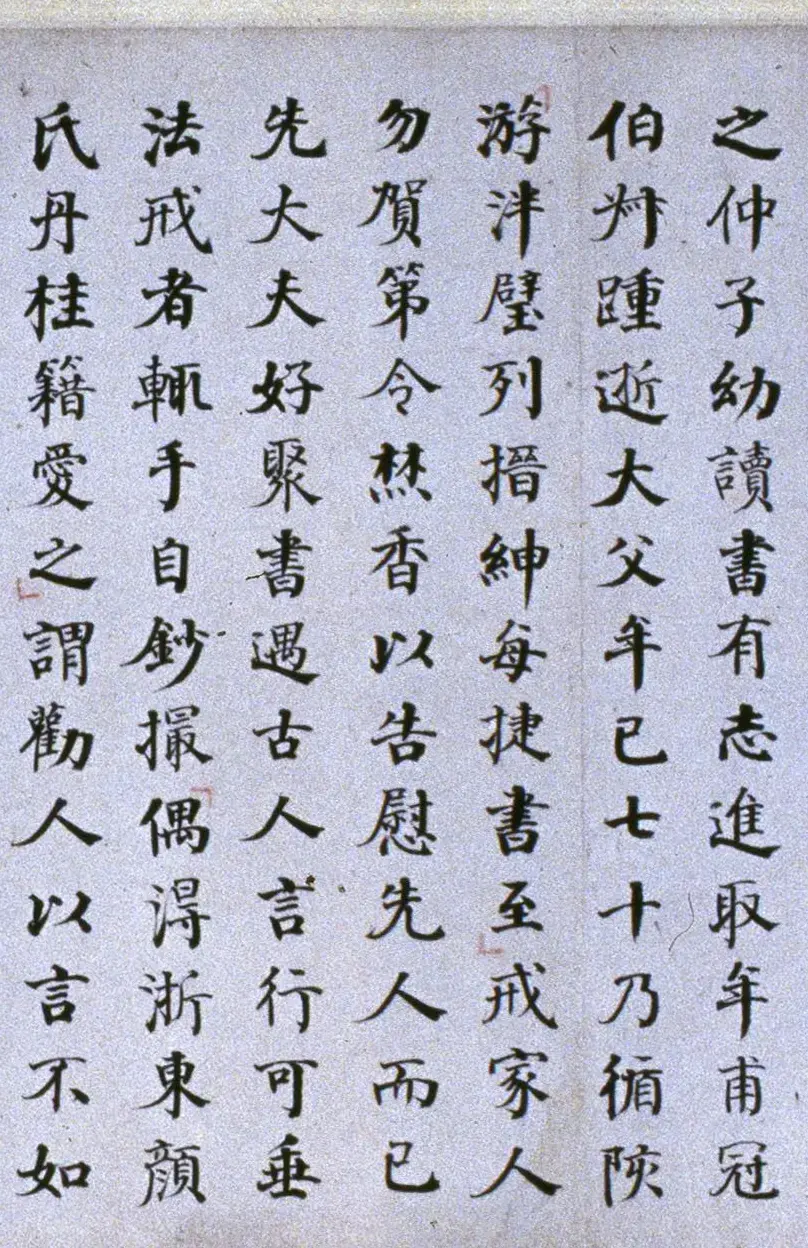 之仲子幼讀書有志進取年甫冠
伯艸踵逝大父年已七十乃循陔
游泮璧列搢紳每捷書至戒家人
勿賀第令焚香以告慰先人而已
先大夫好聚書遇古人言行可垂
法戒者輒手自鈔撮偶得浙東顏
氏丹桂籍愛之謂勸人以言不如